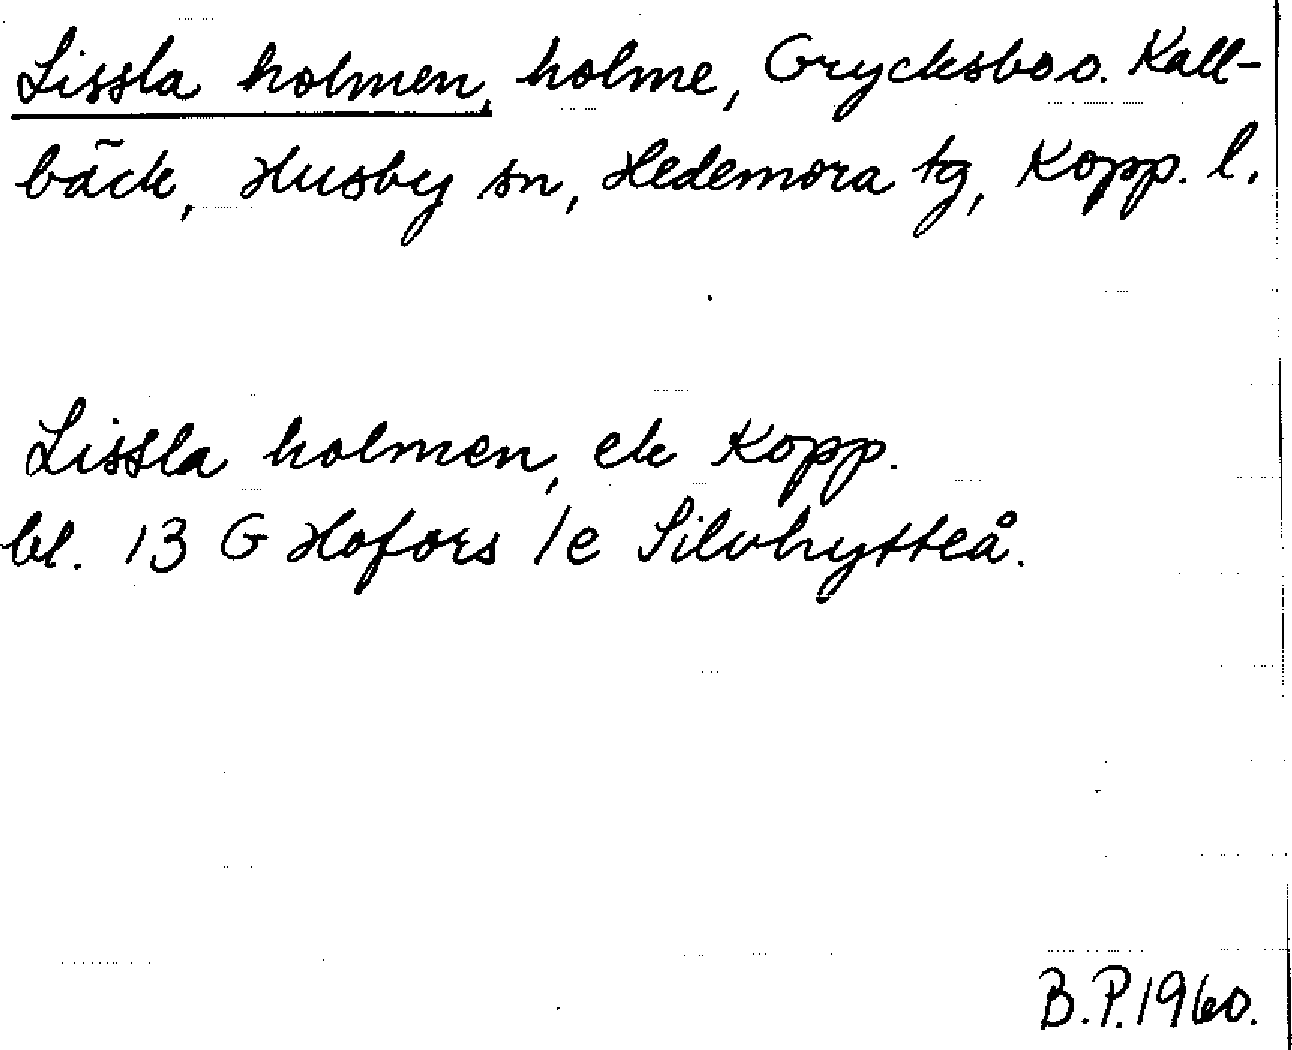 Lissla holmen, holme, Grycksbo o. Kall-
bäck, Husby sn, Hedemora tg, Kopp. l.
Lissla holmen, ek Kopp.
bl. 13 G Hofors 1c Silvhytteå.
B.P. 1960.